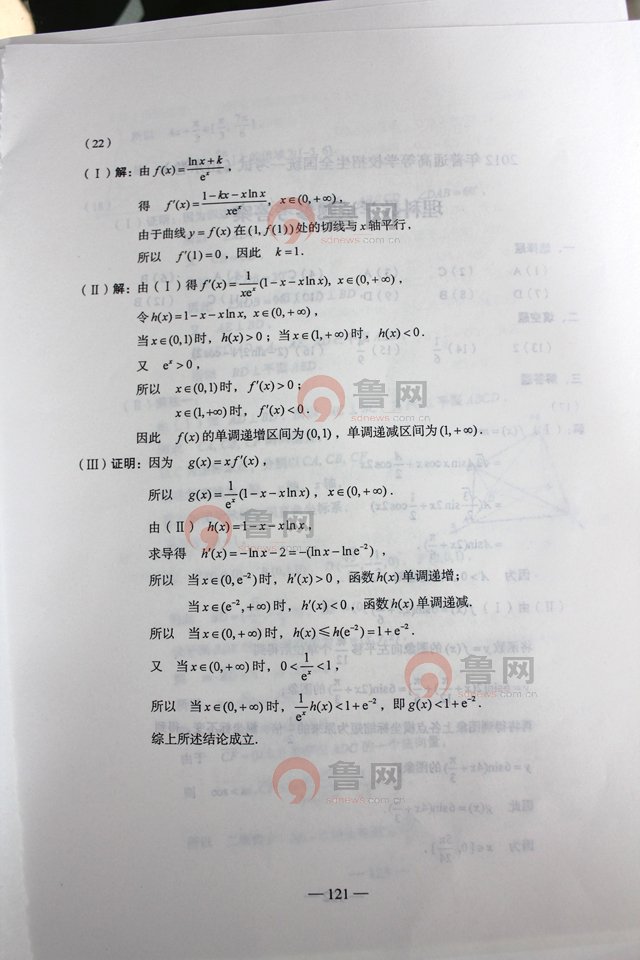 (22)
(Ⅰ)解:由 f(x)=(ln x+k)/e^x,
得 f′(x)=(1-kx-xln x)/(xe^x), x∈(0,+∞),
由于曲线 y=f(x) 在 (1, f(1)) 处的切线与 x 轴平行,
所以 f′(1)=0,因此 k=1.
(Ⅱ)解:由(Ⅰ)得 f′(x)=1/(xe^x)(1-x-xln x), x∈(0,+∞),
令 h(x)=1-x-xln x, x∈(0,+∞),
当 x∈(0,1) 时, h(x)>0;当 x∈(1,+∞) 时, h(x)<0.
又 e^x>0,
所以 x∈(0,1) 时, f′(x)>0;
x∈(1,+∞) 时, f′(x)<0.
因此 f(x) 的单调递增区间为 (0,1),单调递减区间为 (1,+∞).
(Ⅲ)证明:因为 g(x)=xf′(x),
所以 g(x)=1/e^x(1-x-xln x), x∈(0,+∞).
由(Ⅱ) h(x)=1-x-xln x,
求导得 h′(x)=-ln x-2=-(ln x-ln e^-2),
所以 当 x∈(0,e^-2) 时, h′(x)>0,函数 h(x) 单调递增;
当 x∈(e^-2,+∞) 时, h′(x)<0,函数 h(x) 单调递减.
所以 当 x∈(0,+∞) 时, h(x)≤h(e^-2)=1+e^-2.
又 当 x∈(0,+∞) 时, 0<1/e^x<1,
所以 当 x∈(0,+∞) 时, 1/e^x h(x)<1+e^-2,即 g(x)<1+e^-2.
综上所述结论成立.
— 121 —
鲁网
sdnews.com.cn
鲁网
sdnews.com.cn
鲁网
sdnews.com.cn
鲁网
sdnews.com.cn
鲁网
sdnews.com.cn